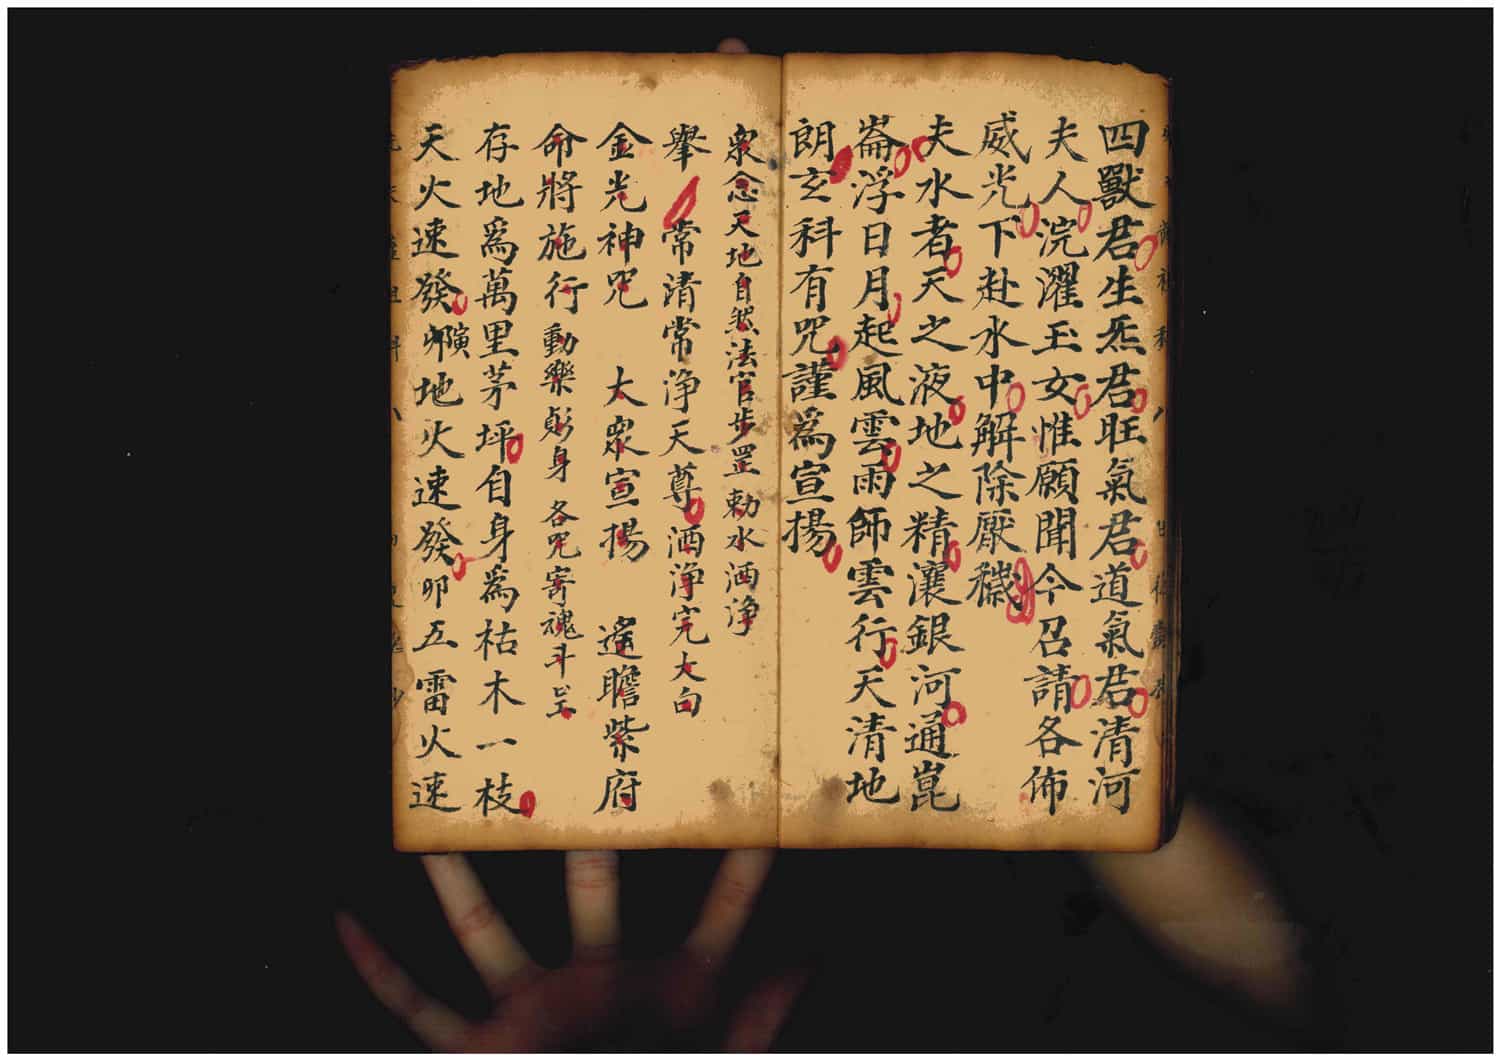 四獸君生炁君旺氣君道氣君清河
夫人浣濯玉女惟願聞今召請各佈
威光下赴水中解除厭穢
夫水者天之液地之精瀼銀河通崑
崙浮日月起風雲雨師雲行天清地
朗玄科有咒謹為宣揚
衆念天地自然法官步罡勅水洒淨
舉常清常淨天尊洒淨完大白
金光神咒 大衆宣揚 遙瞻紫府
命將施行動樂 身各咒寄魂斗
存地爲萬里茅坪自身爲枯木一枝
天火速發 地火速發卯五雷火速